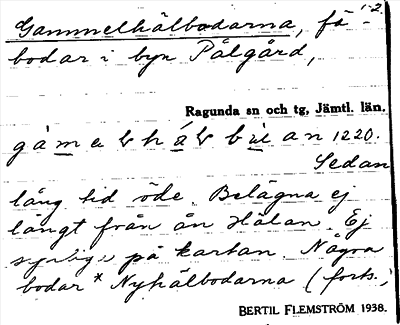 Gammelhålbodarna, få- 1-2.
bodar i byn Pålgård,
Ragunda sn och tg, Jämtl. län.
1220.
Sedan
lång tid öde. Belägna ej
långt från ån Hålan. Ej
synliga på kartan. Några
bodar * Nyhålbodarna (forts.)
BERTIL FLEMSTRÖM 1938.